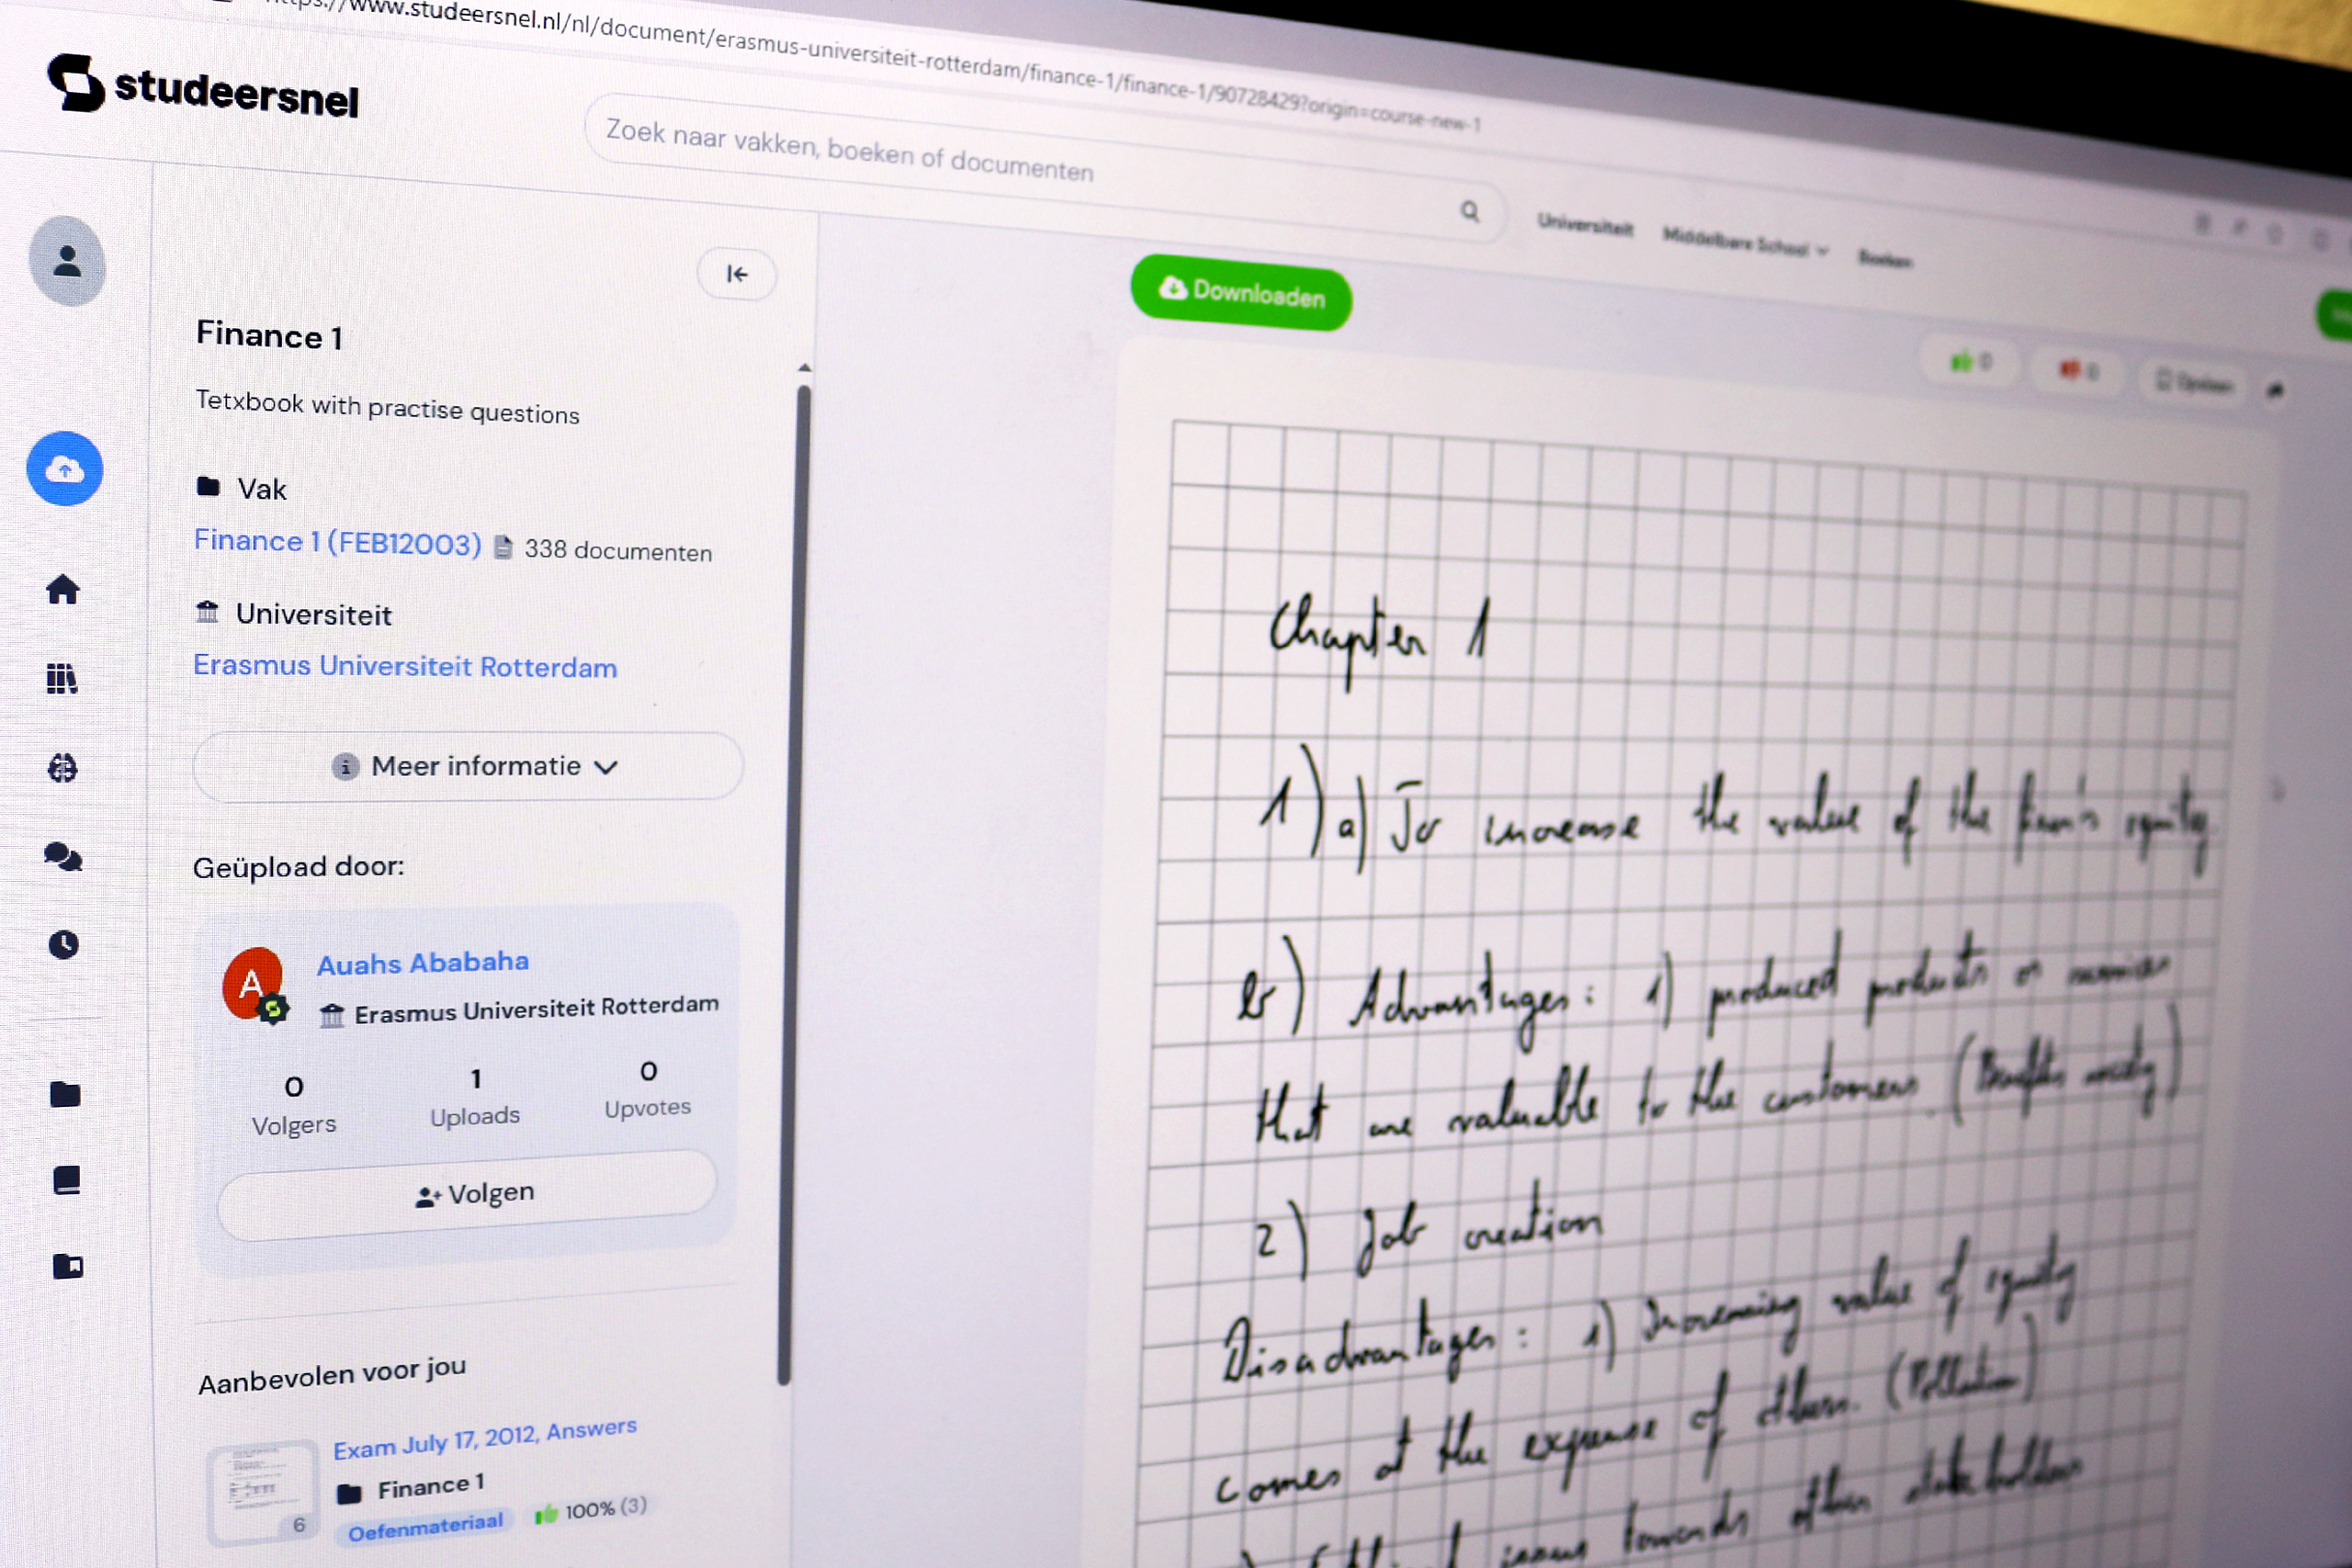 https://www.studeersnel.nl/nl/document/erasmus-universiteit-rotterdam/finance-1/finance-1/90728429?origin=course-new-1
studeersnel
Zoek naar vakken, boeken of documenten
Universiteit
Middelbare School
Boeken
Downloaden
0
0
Opslaan
Finance 1
Tetxbook with practise questions
Vak
Finance 1 (FEB12003) 338 documenten
Universiteit
Erasmus Universiteit Rotterdam
Meer informatie
Geüpload door:
A
Auahs Ababaha
Erasmus Universiteit Rotterdam
0 1 0
Volgers Uploads Upvotes
Volgen
Aanbevolen voor jou
Exam July 17, 2012, Answers
Finance 1
6
Oefenmateriaal 100% (3)
Chapter 1
1) a) To increase the value of the firm's equity
b) Advantages: 1) produced products or
that are valuable to the customers (Benefits society)
2) Job creation
Disadvantages: 1) Increasing value of equity
comes at the expense of others. (Pollution)
issues towards other stakeholders